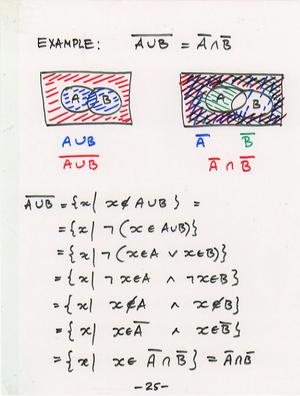 EXAMPLE: A̅∪̅B̅ = A̅∩B̅
A B A B
A∪B A̅ B̅
A̅∪̅B̅ A̅ ∩ B̅
A̅∪̅B̅ = {x| x∉A∪B } =
= {x| ¬(x∈A∪B)}
= {x| ¬(x∈A ∨ x∈B)}
= {x| ¬x∈A ∧ ¬x∈B}
= {x| x∉A ∧ x∉B}
= {x| x∈A̅ ∧ x∈B̅}
= {x| x∈ A̅∩B̅} = A̅∩B̅
-25-